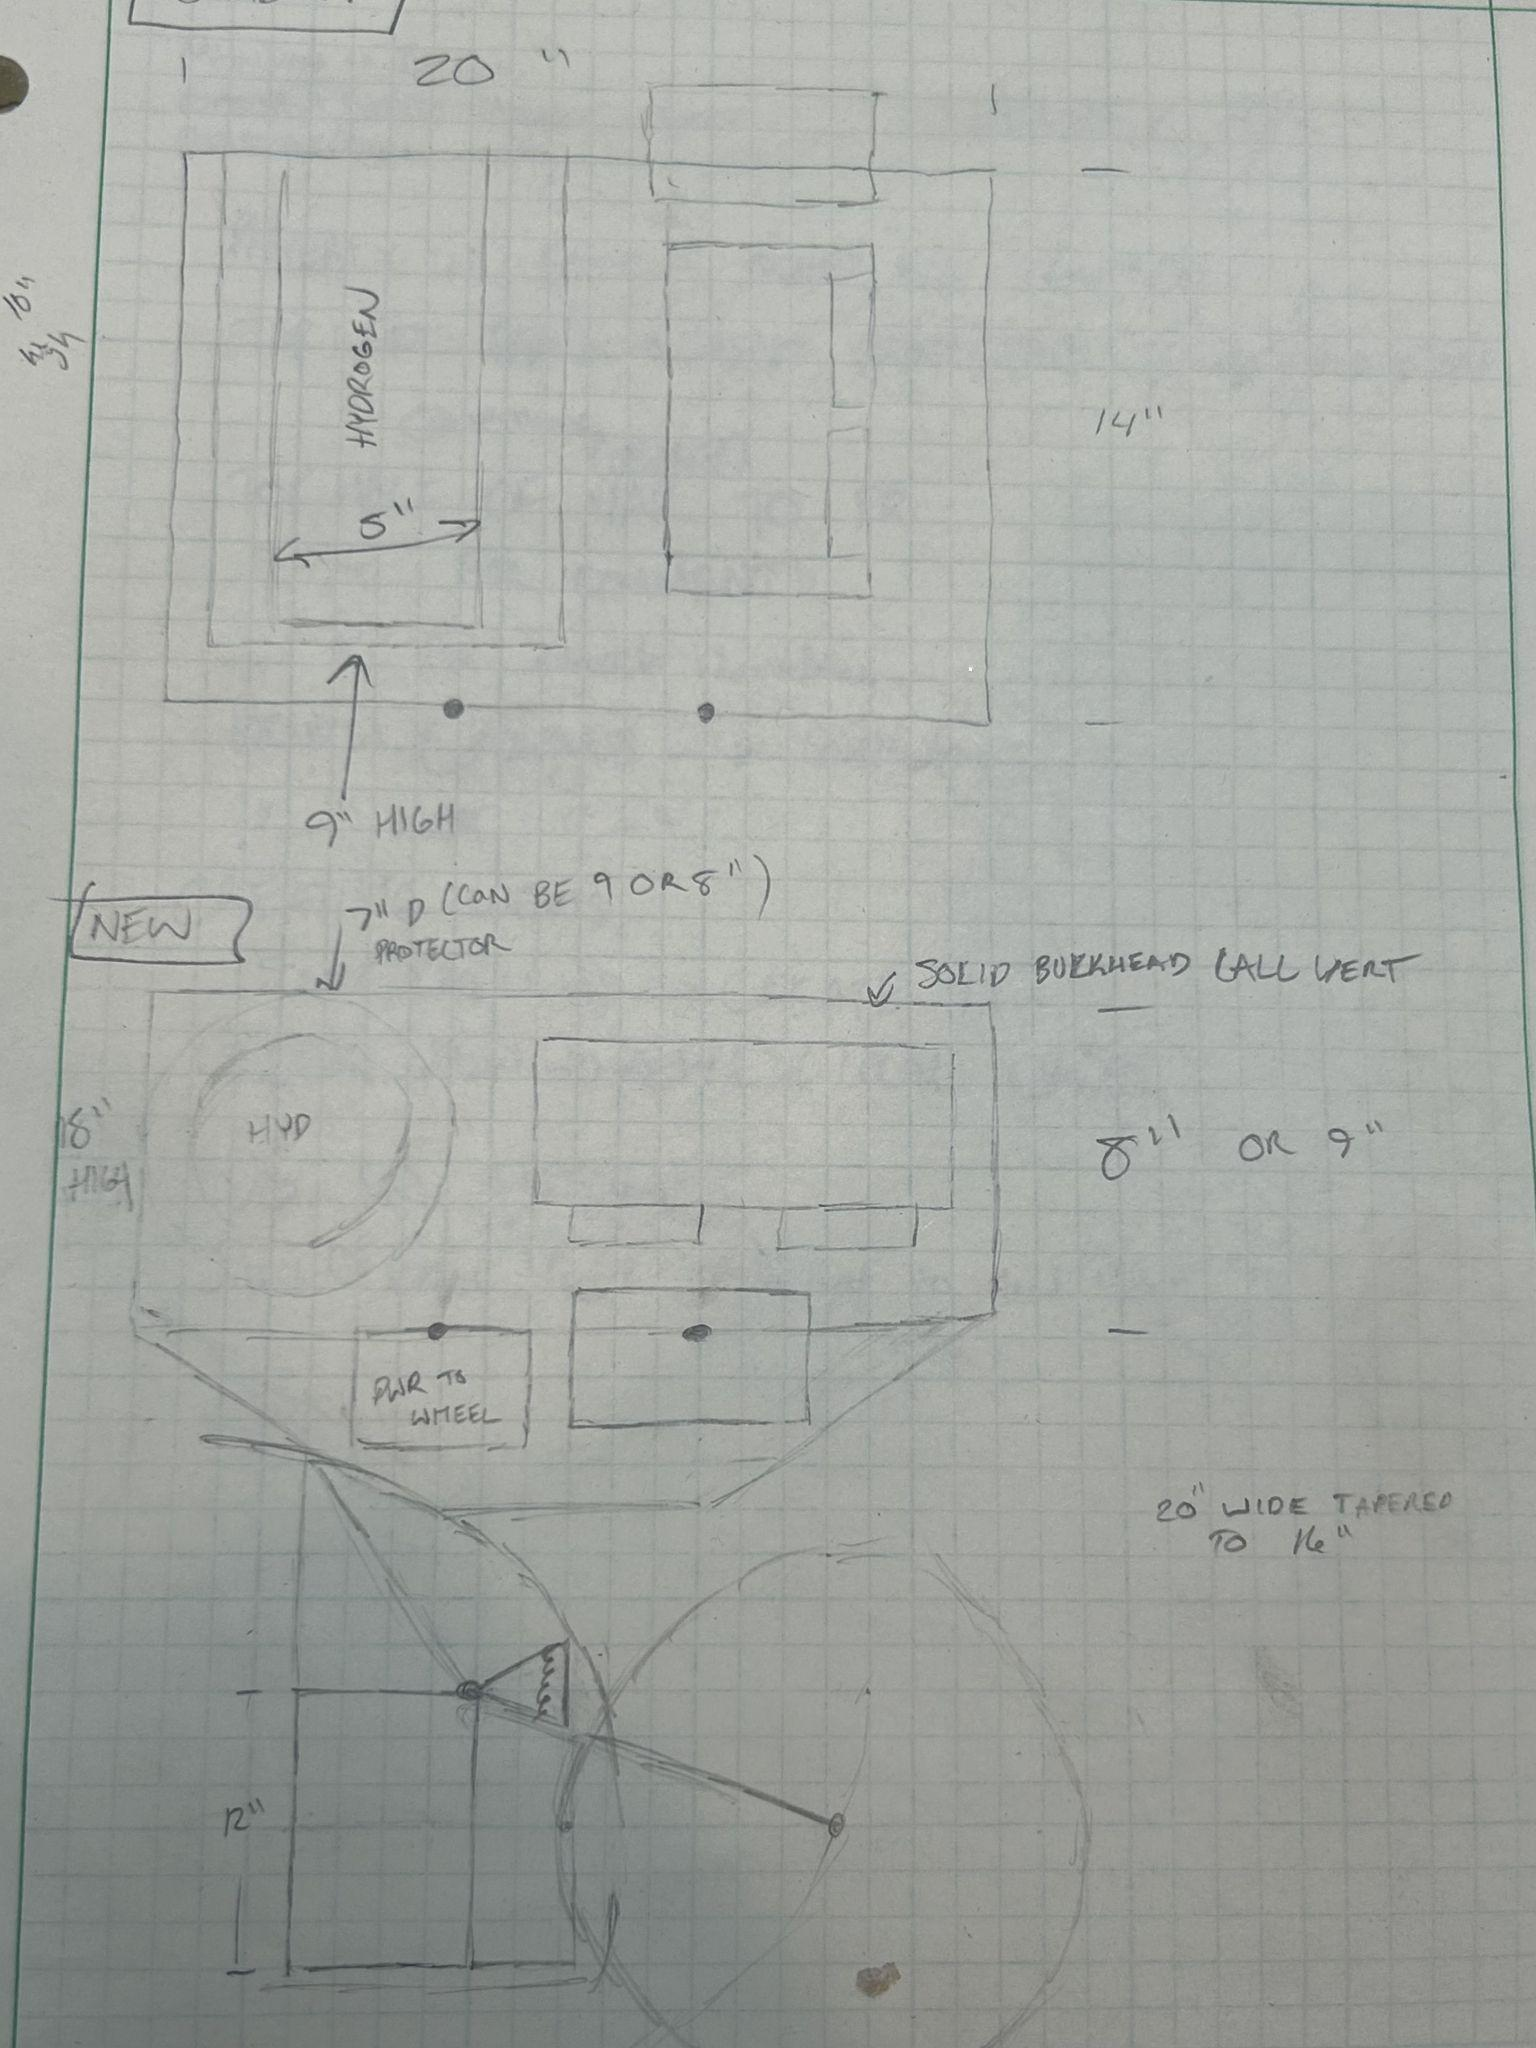 20"
14"
HYDROGEN
5"
9" HIGH
NEW
7" D (CAN BE 9 OR 8")
PROTECTOR
SOLID BULKHEAD (ALL VERT
18"
HIGH
HYD
8" OR 9"
PWR TO
WHEEL
20" WIDE TAPERED
TO 16"
12"